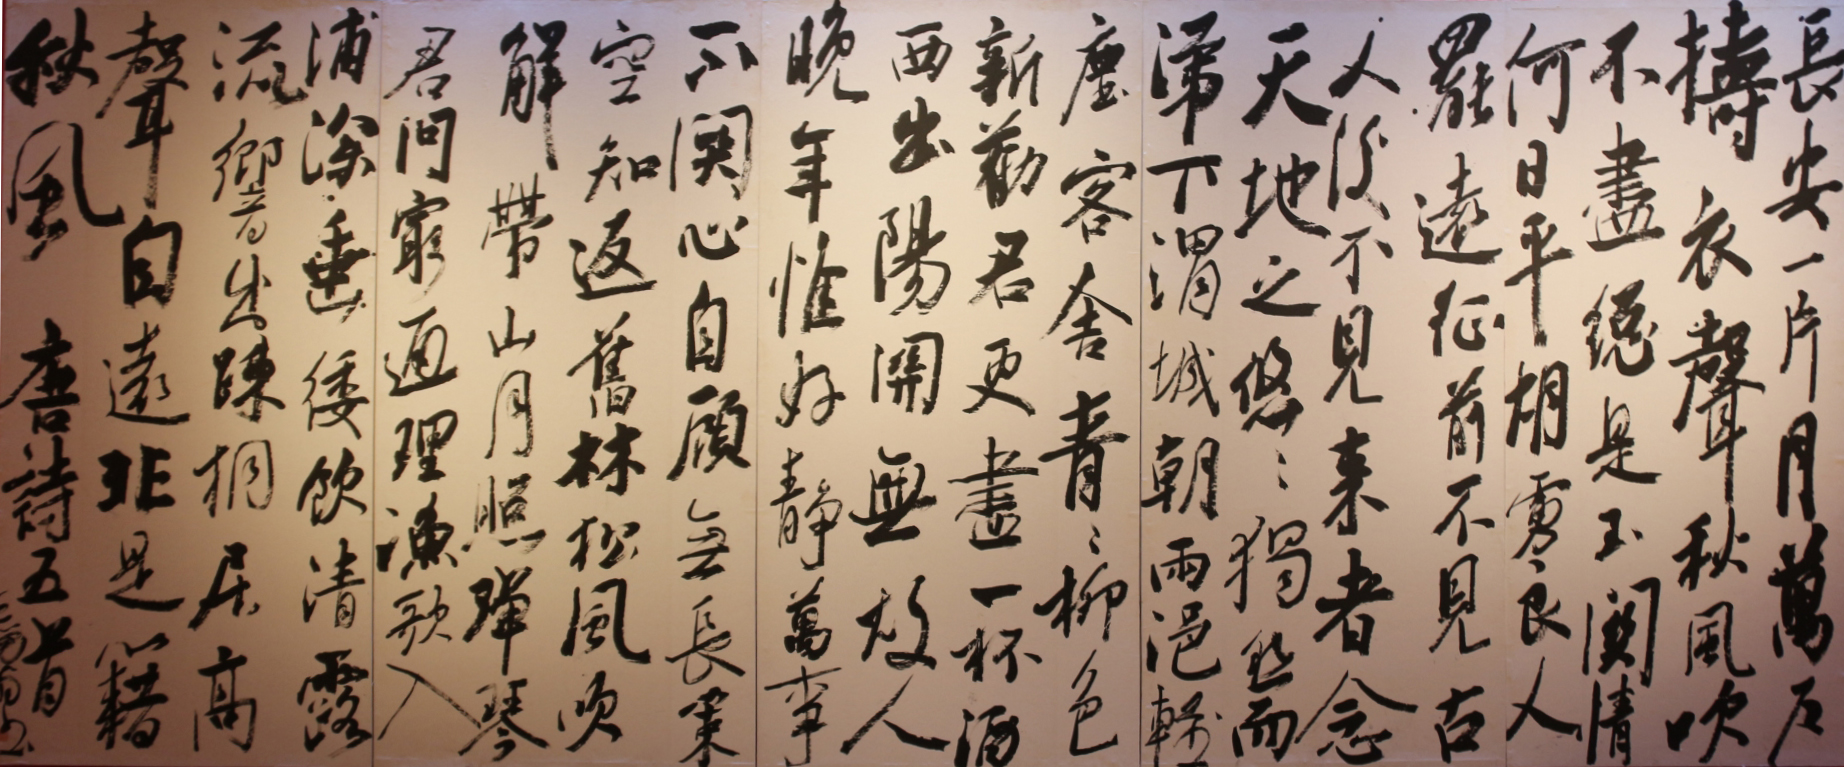 長安一片月萬户
擣衣聲秋風吹
不盡總是玉關情
何日平胡虜良人
罷遠征前不見古
人後不見來者念
天地之悠〻獨然而
涕下渭城朝雨浥輕
塵客舍青〻柳色
新勸君更盡一杯酒
西出陽關無故人
晚年惟好靜萬事
不關心自顧无長策
空知返舊林松風吹
解帶山月照彈琴
君問窮通理漁歌入
浦深垂倭飲清露
流響出疎桐居高
聲自遠非是籍
秋風 唐詩五首